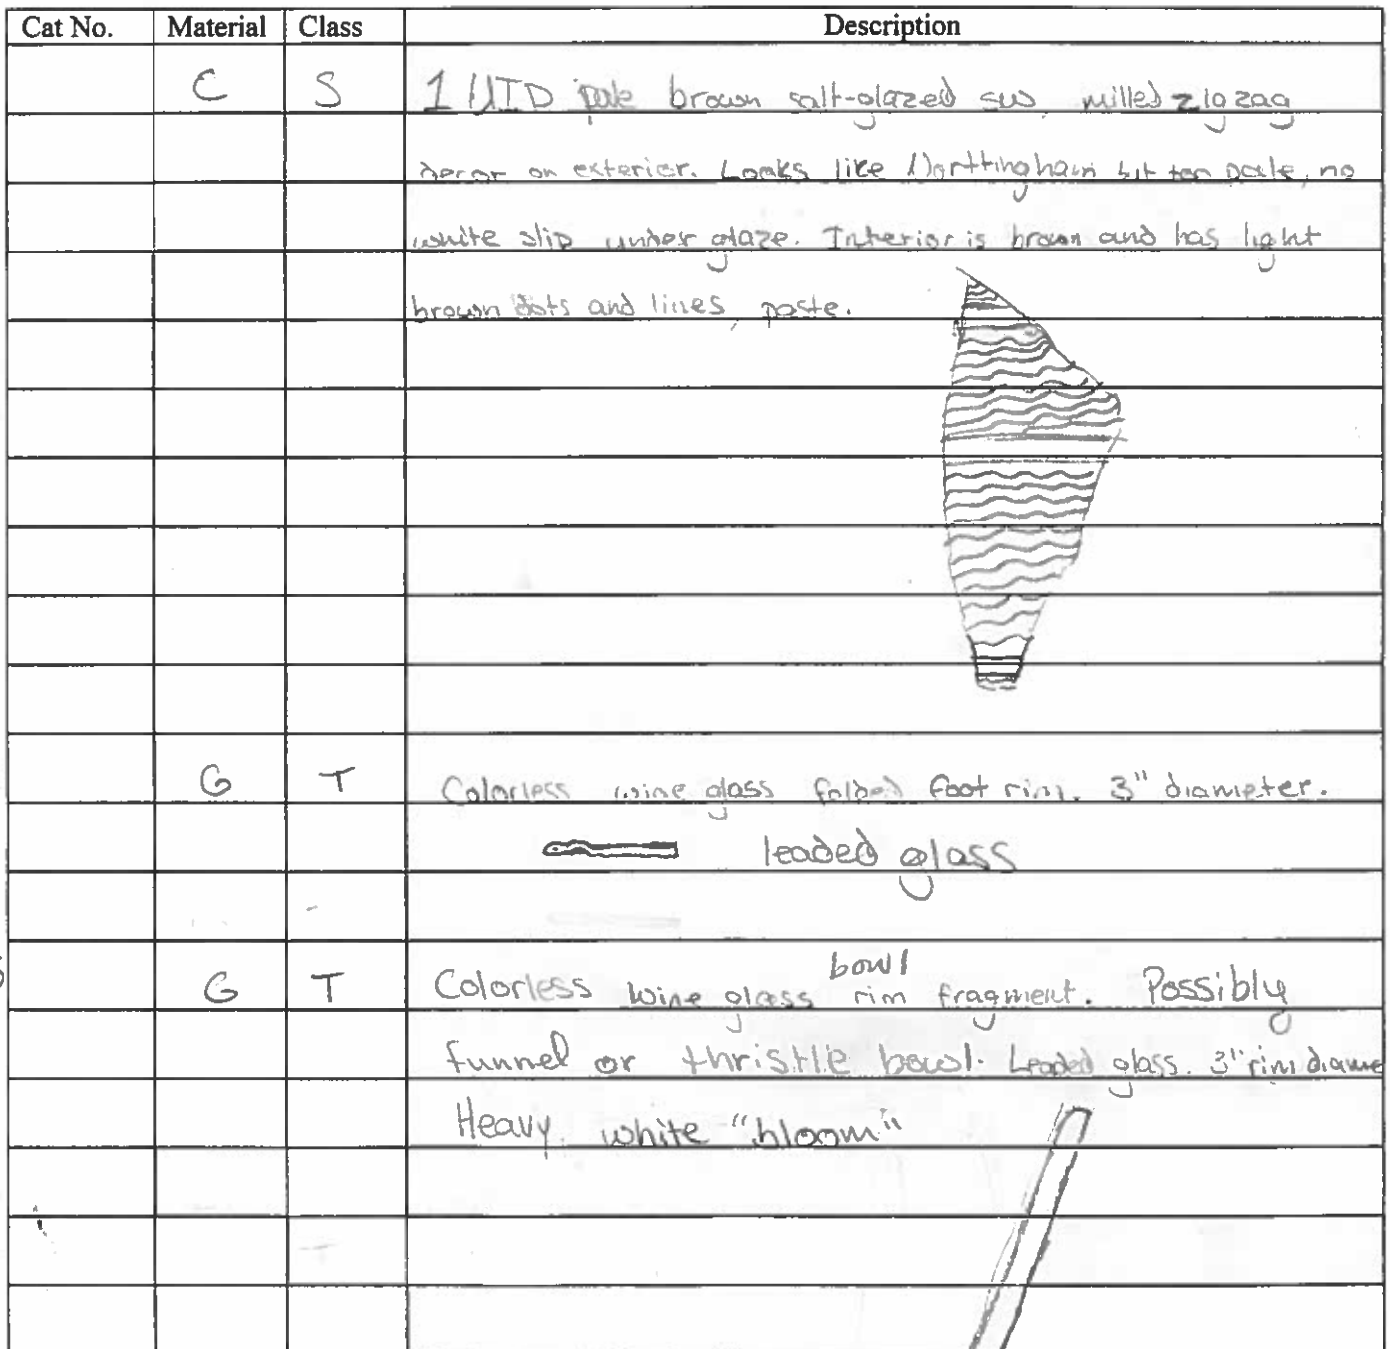 Cat No. Material Class Description
C S 1 UTD pale brown salt-glazed sw, milled zigzag
decor on exterior. Looks like Norttingham but too pale, no
white slip under glaze. Interior is brown and has light
brown dots and lines, paste.
G T Colorless wine glass folded foot rim. 3" diameter.
leaded glass
bowl
G T Colorless wine glass rim fragment. Possibly
funnel or thristle bowl. Leaded glass. 3" rim diame
Heavy, white "bloom"